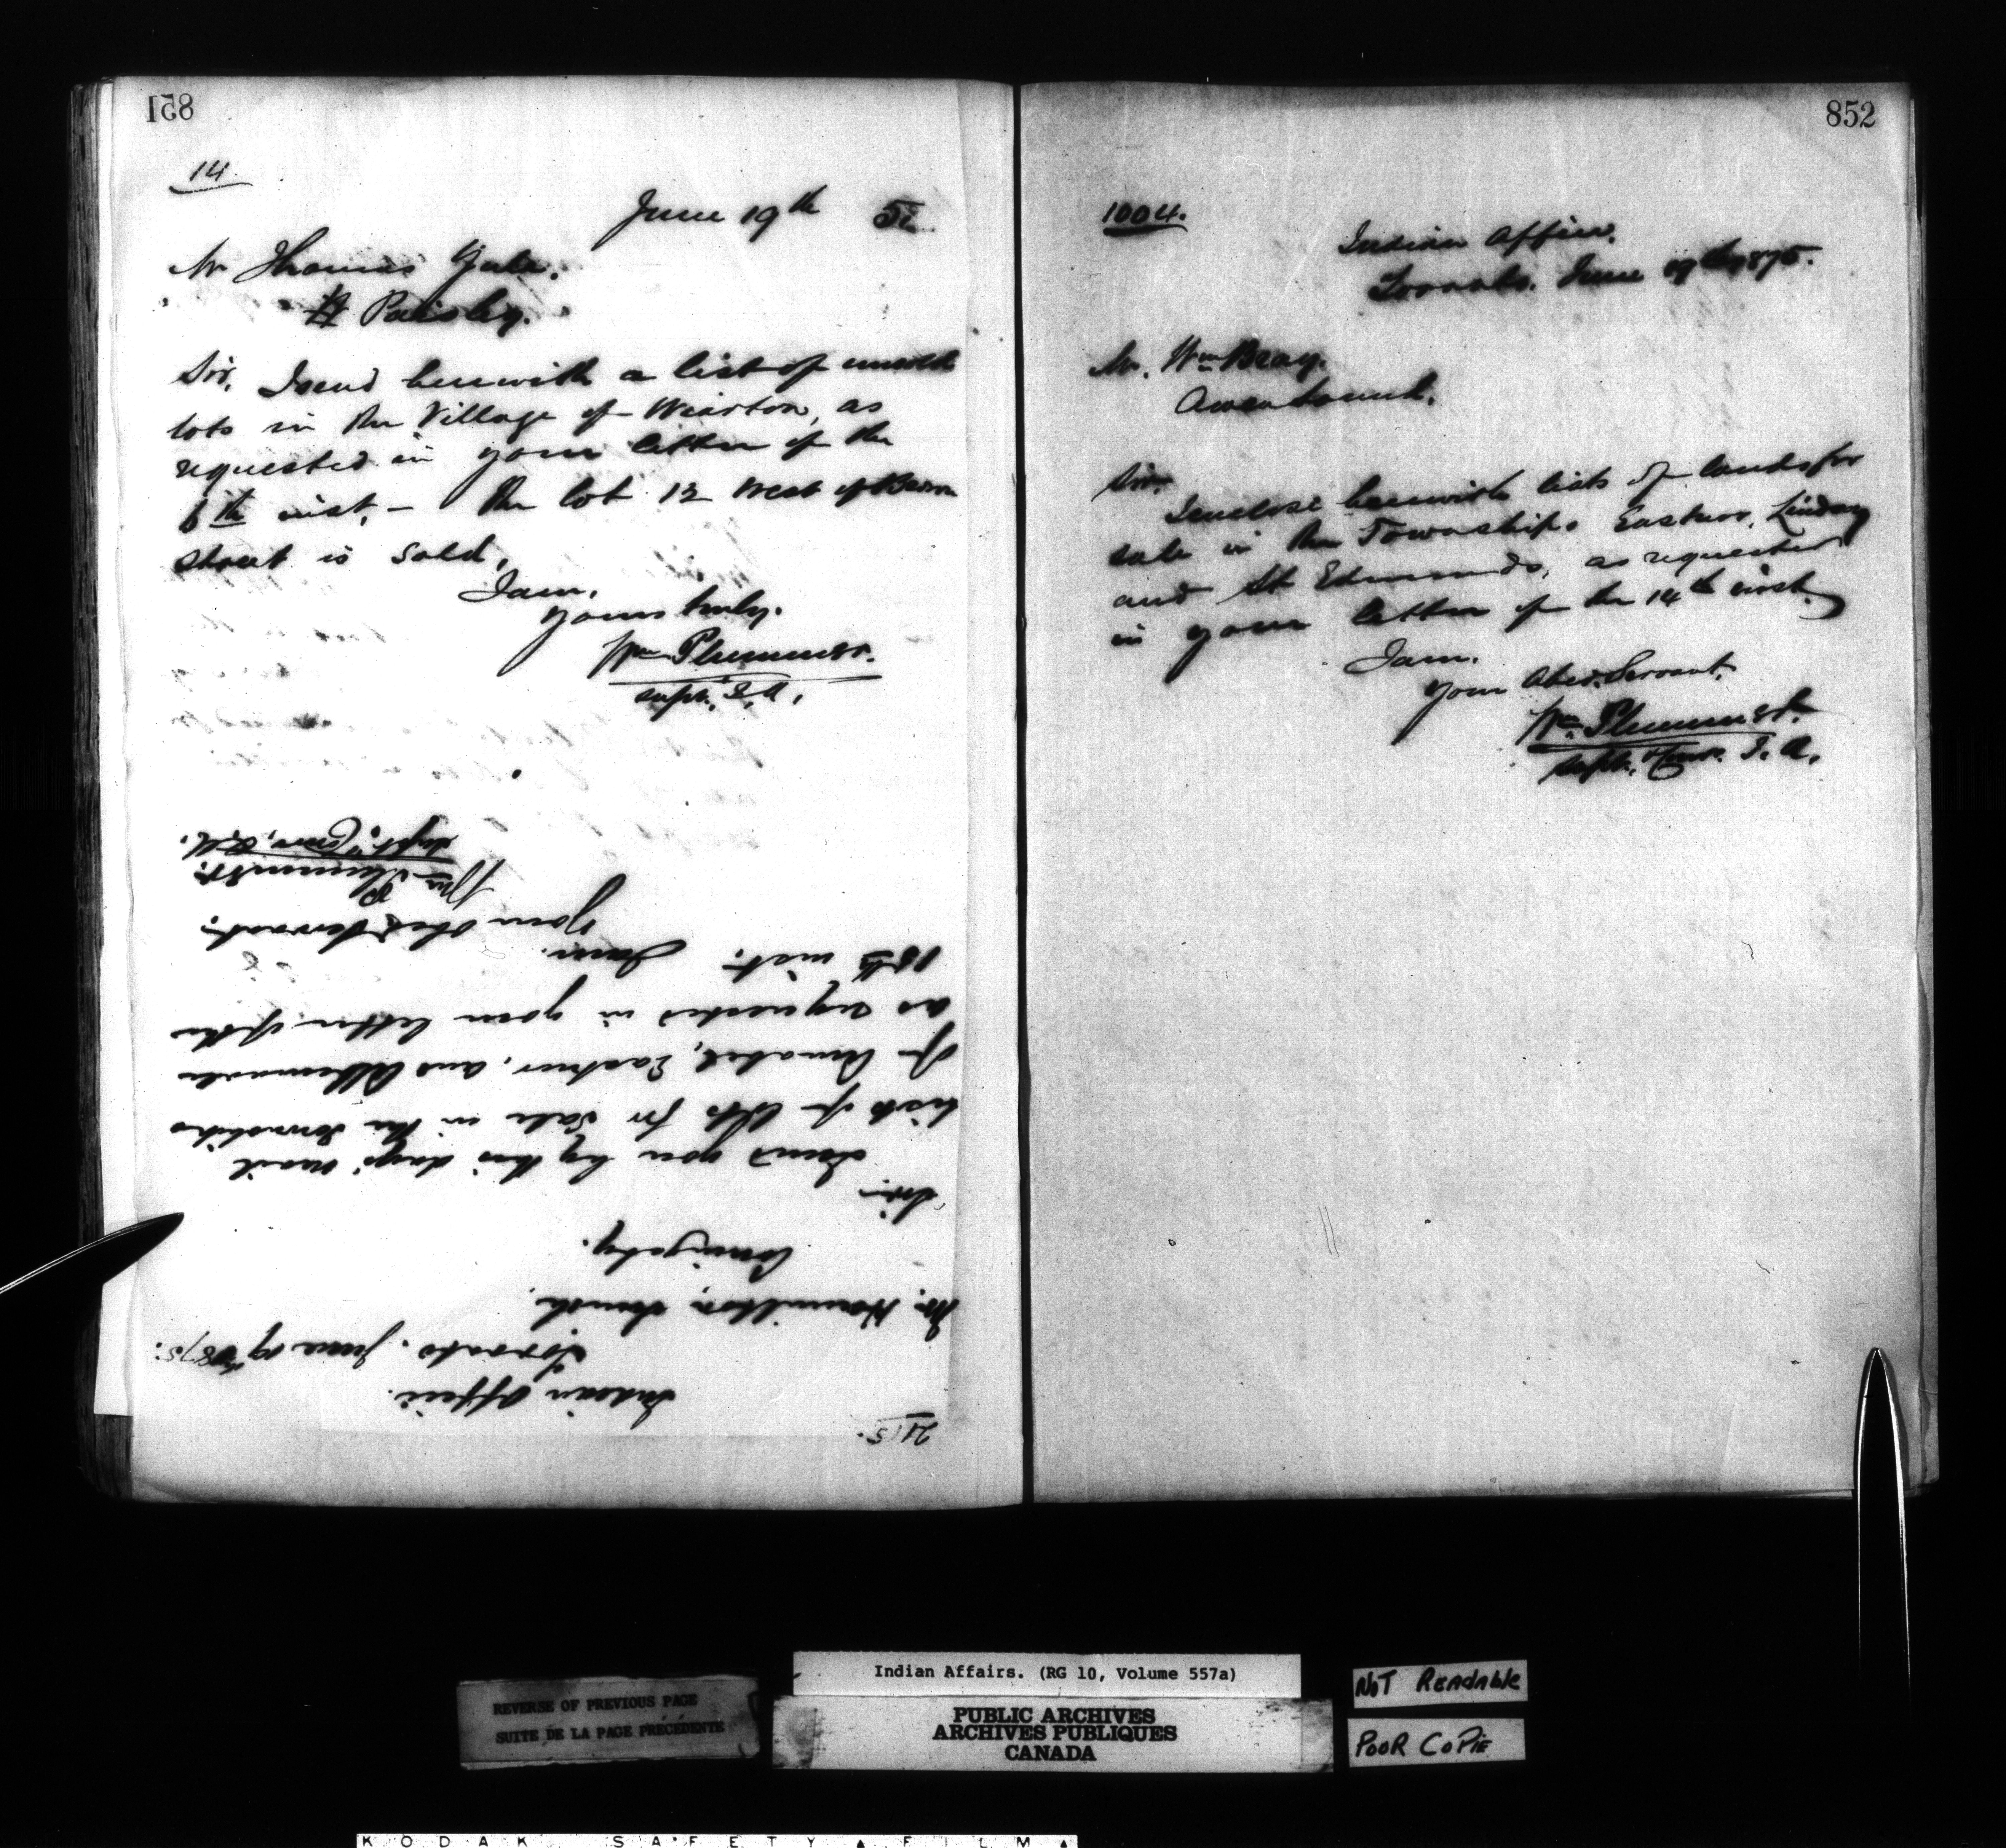 851
14
June 19th 5
Mr Thomas Yule.
Paisley.
Sir, I send herewith a list of unsold
lots in the Village of Wiarton, as
requested in your letter of the
inst, — The lot 12 West of
street is sold,
I am,
Yours truly.
Wm Plummer.
Supt. I A,
215.
Indian Office.
Toronto, June 19th 1875.
Mr. Hamilton Smith.
Sir.
I send you by this days mail
lists of lots for sale in the Townships
of Amabel, Eastnor, and Albemarle
as requested in your letter of the
18th inst. I am.
Your Obed Servant.
Wm Plummer.
Supt. Comr, I.A.
852
1004.
Indian Office.
Toronto. June 19th 1875.
Mr. Wm Bray.
Owen Sound.
Sir.
I enclose herewith lists of lands for
sale in the Townships Eastnor, Lindsay
and St Edmunds, as requested
in your letter of the 14th inst.
I am.
Your Obed. Servant.
Wm Plummer.
Supt. Comr. I. A.
REVERSE OF PREVIOUS PAGE
SUITE DE LA PAGE PRÉCÉDENTE
Indian Affairs. (RG 10, Volume 557a)
PUBLIC ARCHIVES
ARCHIVES PUBLIQUES
CANADA
NOT READABLE
POOR COPIE
KODAK SAFETY FILM